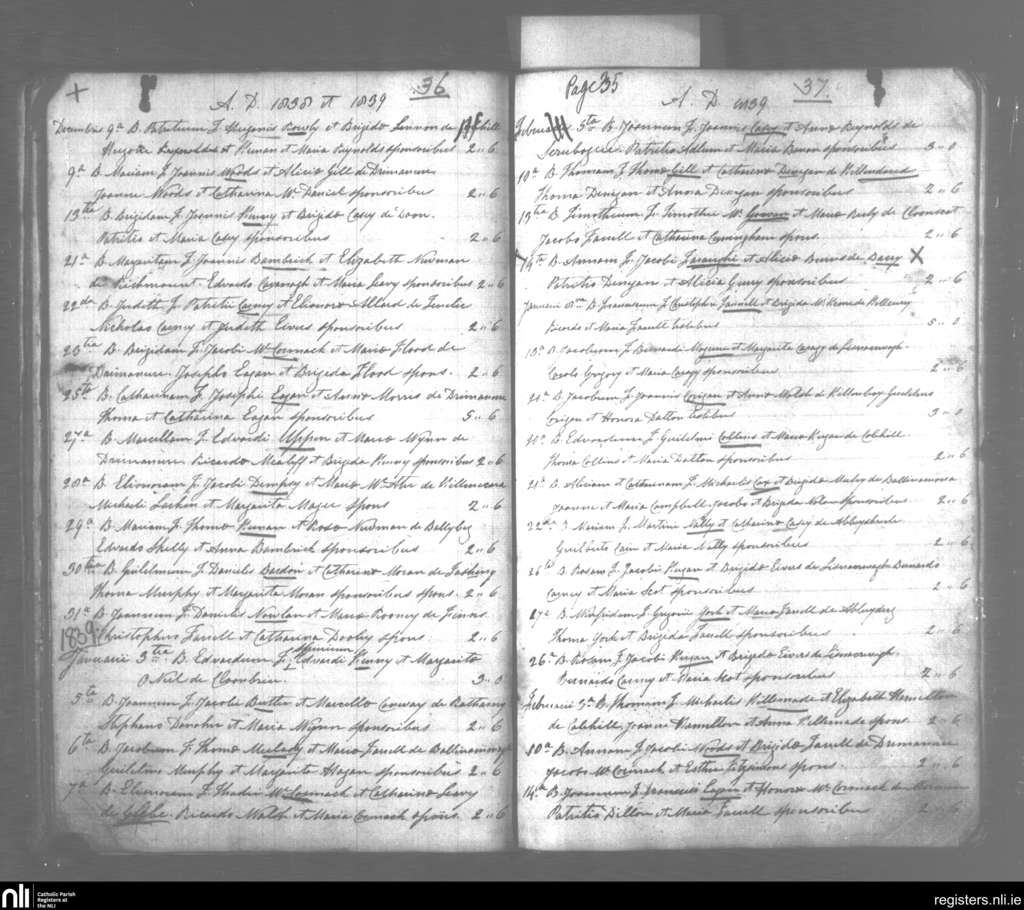 + 36
A. D. 1838 et 1839
Decembris 9a B. Patritium F. Hugonis Rowly et Brigida Lennon de hill
Reynolds et Kenan et Maria Reynolds sponsoribus 2 .. 6
9a B. Mariam F. Joannis Woods et Alicia Gill de Drimanure
Joanne Woods et Catharina Mc Daniel sponsoribus 2 .. 6
13tia B. Brigidam F. Joannis Kenny et Brigida Casey de Coon.
Patritio et Maria Casey sponsoribus 2 .. 6
21a B. Margaritam F. Joannis Bambrick et Elizabeth Newman
de Richmount. Edvardo Cavanagh et Maria Leavy sponsoribus 2 .. 6
22da B. Judith F. Patritii Carny et Elenora Allard de
Nicholao Carny et Judith Eivers sponsoribus 2 .. 6
23tia B. Brigidam F. Jacobi Mc Cormack et Maria Flood de
Drimanure. Josepho Eagan et Brigida Flood spons. 2 .. 6
25ta B. Catharinam F. Josephi Eagan et Anna Morris de Drimanure
Thoma et Catharina Eagan sponsoribus 5 .. 6
27a B. Marcellam F. Edvardi et Maria Wynn de
Drimanure Ricardo Metcalf et Brigida Kenny sponsoribus 2 .. 6
28a B. Elionoram F. Jacobi Dempsey et Maria Mc de Killenecara
Michaele Larkin et Margarita Magee spons 2 .. 6
29a B. Mariam F. Thoma Kenan et Rosa Newman de Ballybeg
Edvardo Skelly et Anna Bambrick sponsoribus 2 .. 6
30ma B. Guilelmum F. Danielis Bardon et Catharina Moran de
Thoma Murphy et Margarita Moran sponsoribus spons. 2 .. 6
31a B. Joannem F. Danielis Nowlan et Maria Rooney de
1839
Christophoro Farrell et Catharina Dooley spons. 2 .. 6
Januarii 3tia B. Edvardum F. Edvardi Kenny et Margarita
O Neil de Cloonbrin. 3 .. 0
5ta B. Joannem F. Jacobi Butler et Marcella Conway de Ratharny
Stephano Donohu et Maria Wynn sponsoribus 2 .. 6
6ta B. Jacobum F. Thoma Melady et Maria Farrell de Ballinamore
Guilelmo Murphy et Margarita Hagan sponsoribus 2 .. 6
7a B. Elenoram F. Thadei Mc Cormack et Catharina Leavy
de Glebe. Ricardo Walsh et Maria Cormack spons. 2 .. 6
Page 35 37
A. D. 1839
Februarii 5ta B. Joannem F. Joannis Casey et Anna Reynolds de
Patritio Adlum et Maria sponsoribus 3 .. 0
10a B. Thomam F. Thoma Gill et Catharina Dinigan de Killendered
Thoma Dinigan et Anna Dinigan sponsoribus 2 .. 6
13tia B. Timotheum F. Timothei Mc Gowan et Maria de Cloonseet
Jacobo Farrell et Catharina Cuningham spons. 2 .. 6
14ta B. Annam F. Jacobi et Alicia Burns de Barry X
Patritio Dinigan et Alicia sponsoribus 2 .. 6
Januarii B. Joannem F. Farrell et Brigida Mc de
Ricardo et Maria Farrell testibus 5 .. 0
18a B. Jacobum F. Bernardi et Margarita Carey de
Carolo Gregory et Maria Carey sponsoribus 2 .. 6
21a B. Jacobum F. Joannis Corigan et Anna Walsh de Guilelmo
Corigan et Honora Dalton testibus 3 .. 0
B. Edvardum F. Guilelmi Collins et Maria Kegan de Colehill.
Thoma Collins et Maria Dalton sponsoribus 2 .. 6
21a B. et Catharinam F. Michaelis Cox et Brigida de Ballinamona
Joanne et Maria Campbell. Jacobo et Brigida Nolan sponsoribus 2 .. 6
22da B Mariam F. Martini Nally et Catharina Casey de Abbeyshrule
Guilelmo Cain et Maria Nally sponsoribus 2 .. 6
26ta B. Rosam F. Jacobi Kegan et Brigida Eivers de Bernardo
Carney et Maria Scot sponsoribus 2 .. 6
27a B. F. Gregorii York et Maria Farrell de Abbeyderg
Thoma York et Brigida Farrell sponsoribus 2 .. 6
26a B. Rosam F. Jacobi Kegan et Brigida Eivers de
Bernardo Carny et Maria Scot sponsoribus 2 .. 6
Februarii 3a B. Thomam F. Michaelis Killemade et Elizabeth Hamilton
de Colehill, Joanne Hamilton et Anna Killemade spons. 2 .. 6
10a B. Annam F. Jacobi Woods et Brigida Farrell de Drimanure
Jacobo Mc Cormack et Esther Fitzsimons spons. 2 .. 6
14a B. Joannem F. Francisci Eagan et Honora Mc Cormack de
Patritio Dillon et Maria Farrell sponsoribus 2 .. 6
nli Catholic Parish
Registers at
the NLI
registers.nli.ie